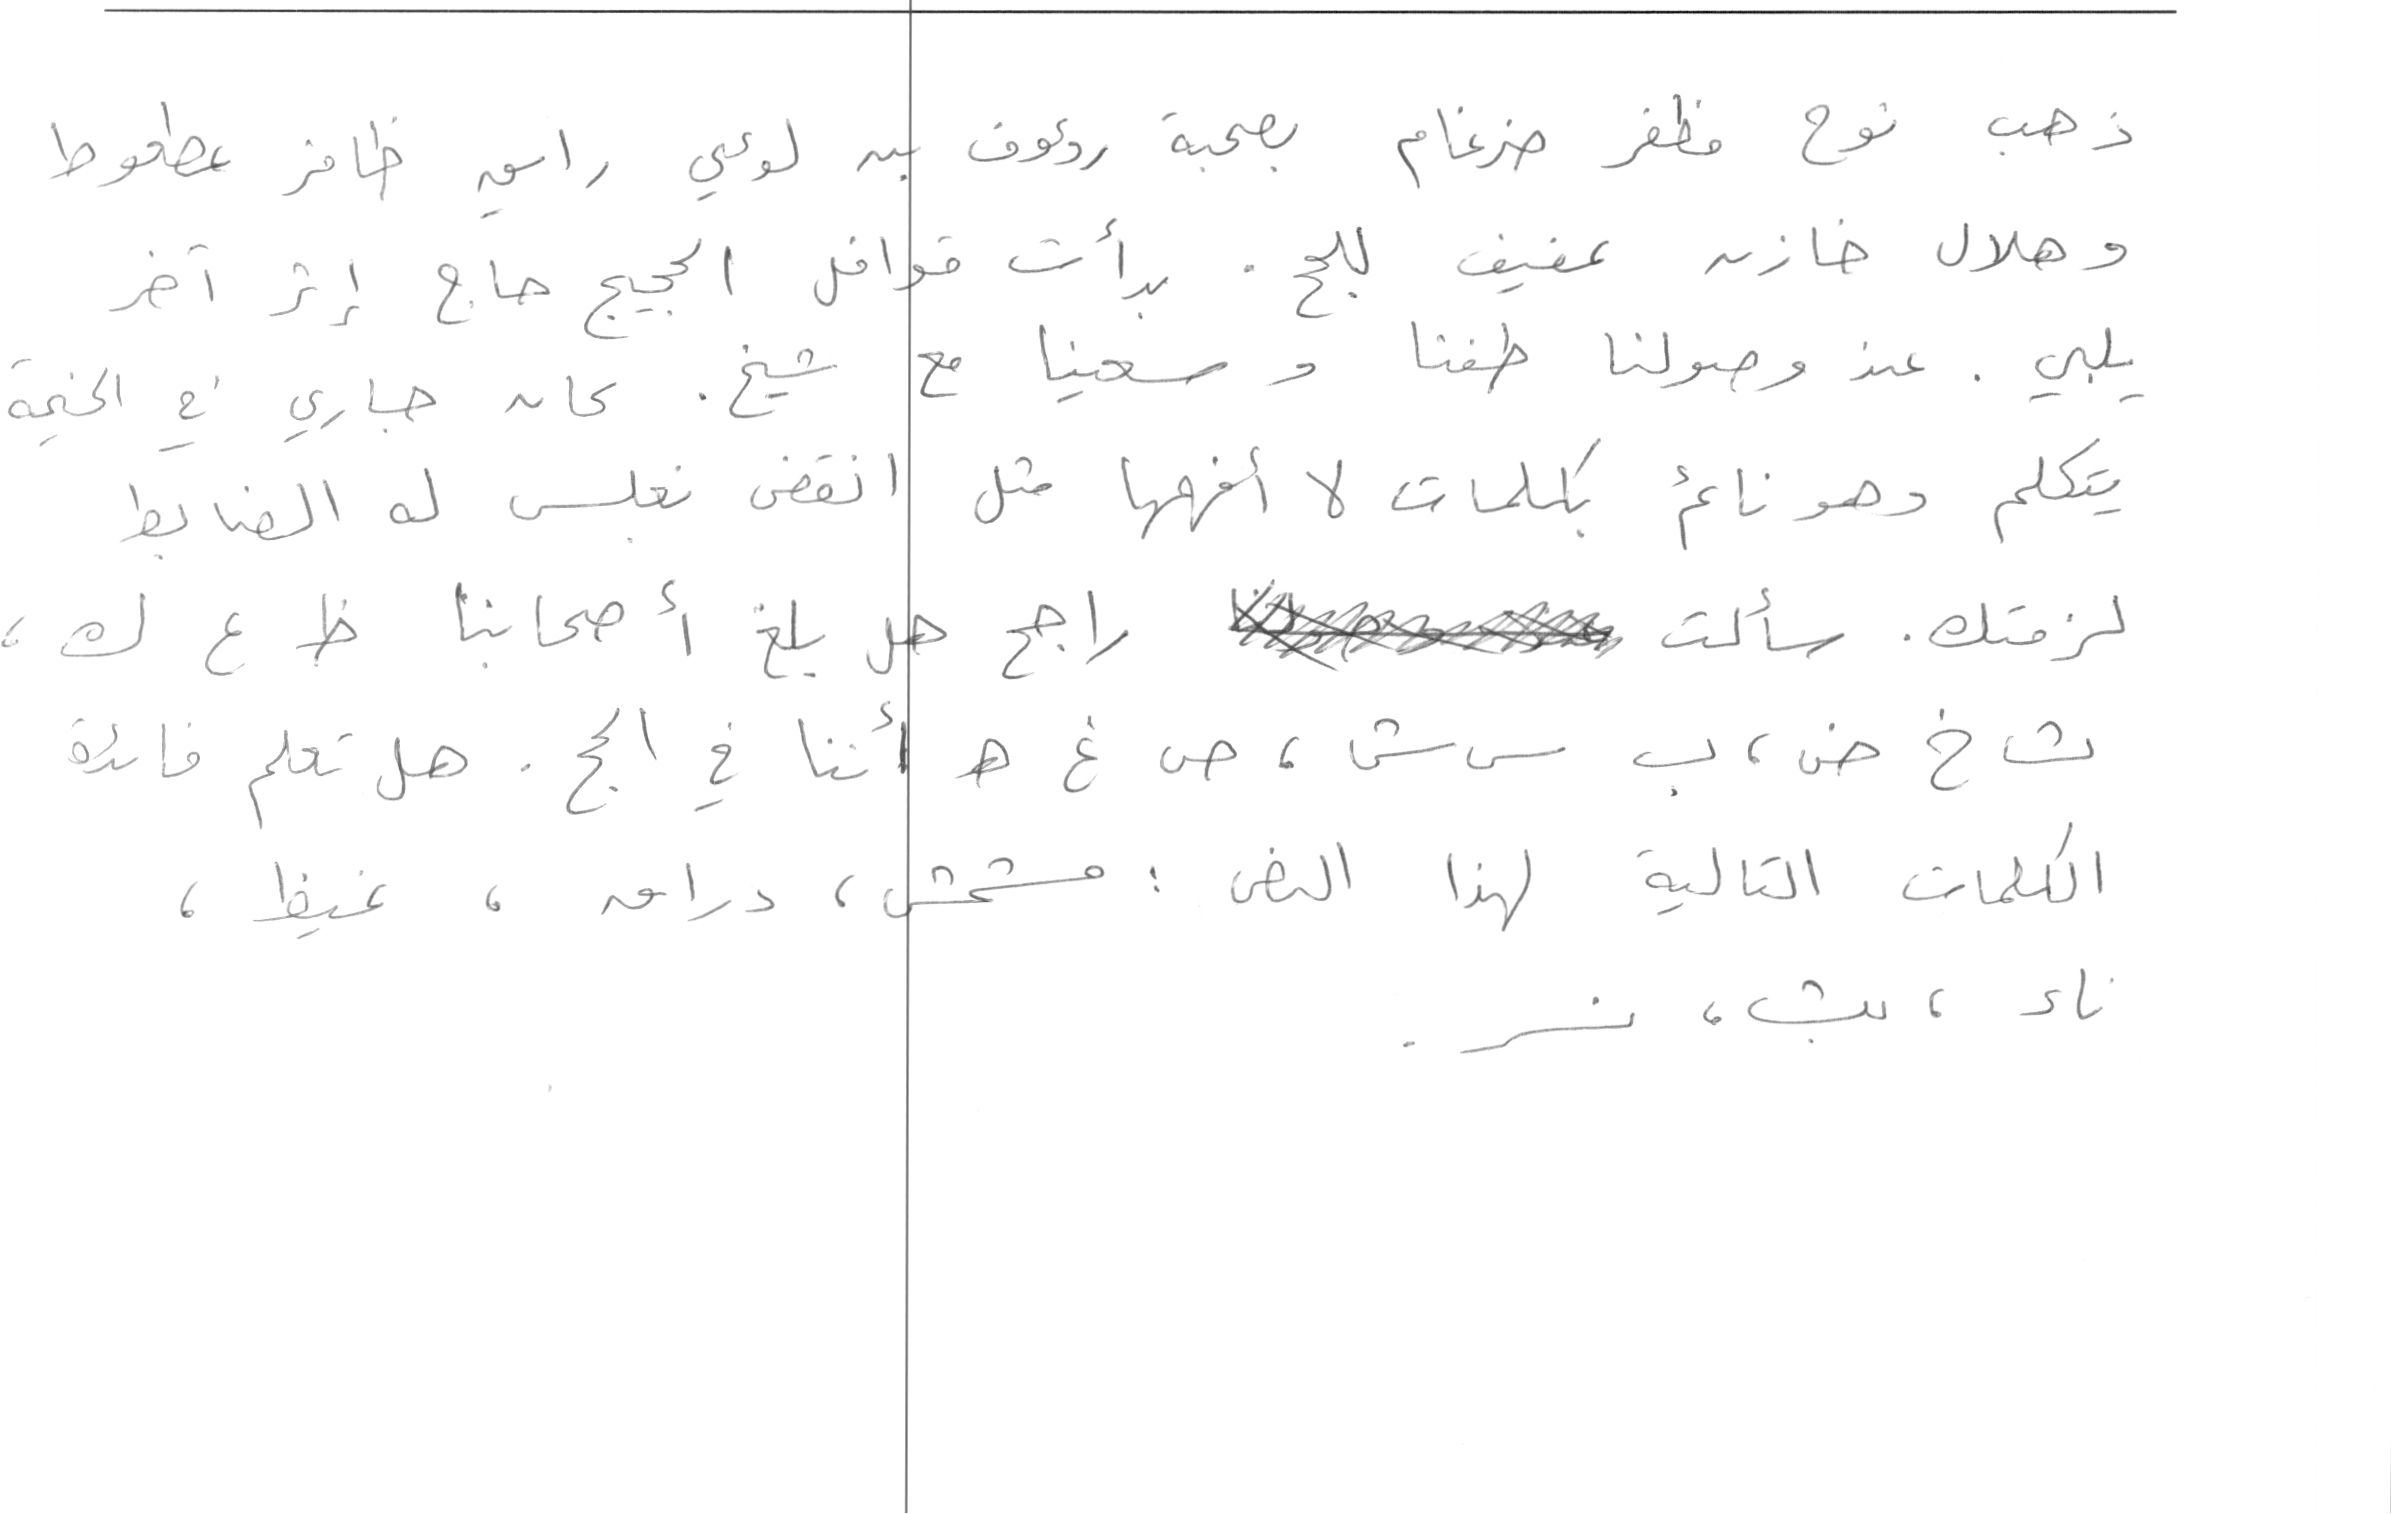 ذهب نوح مظفر ضرغام بصحبة رءوف بن لوءي رامي ظافر عطعوط
وهلال خازن عفيف للحج. بدأت قوافل الحجيج حاج إثر آخر
يلبي. عند وصولنا طفنا وسعينا مع شيخ. كان جاري في الخيمة
يتكلم وهو نائم بكلمات لا أفهمها مثل انقض نعلس له الضابط
لزمتك. سألت راجح هل بلغ أصحابنا ظ ع ك،
ث خ ض، ب س ش، ص غ ه أننا في الحج. هل تعلم فائدة
الكلمات التالية لهذا النص: مشمش، دراهم، غيظ،
ناء، بث، نسر.